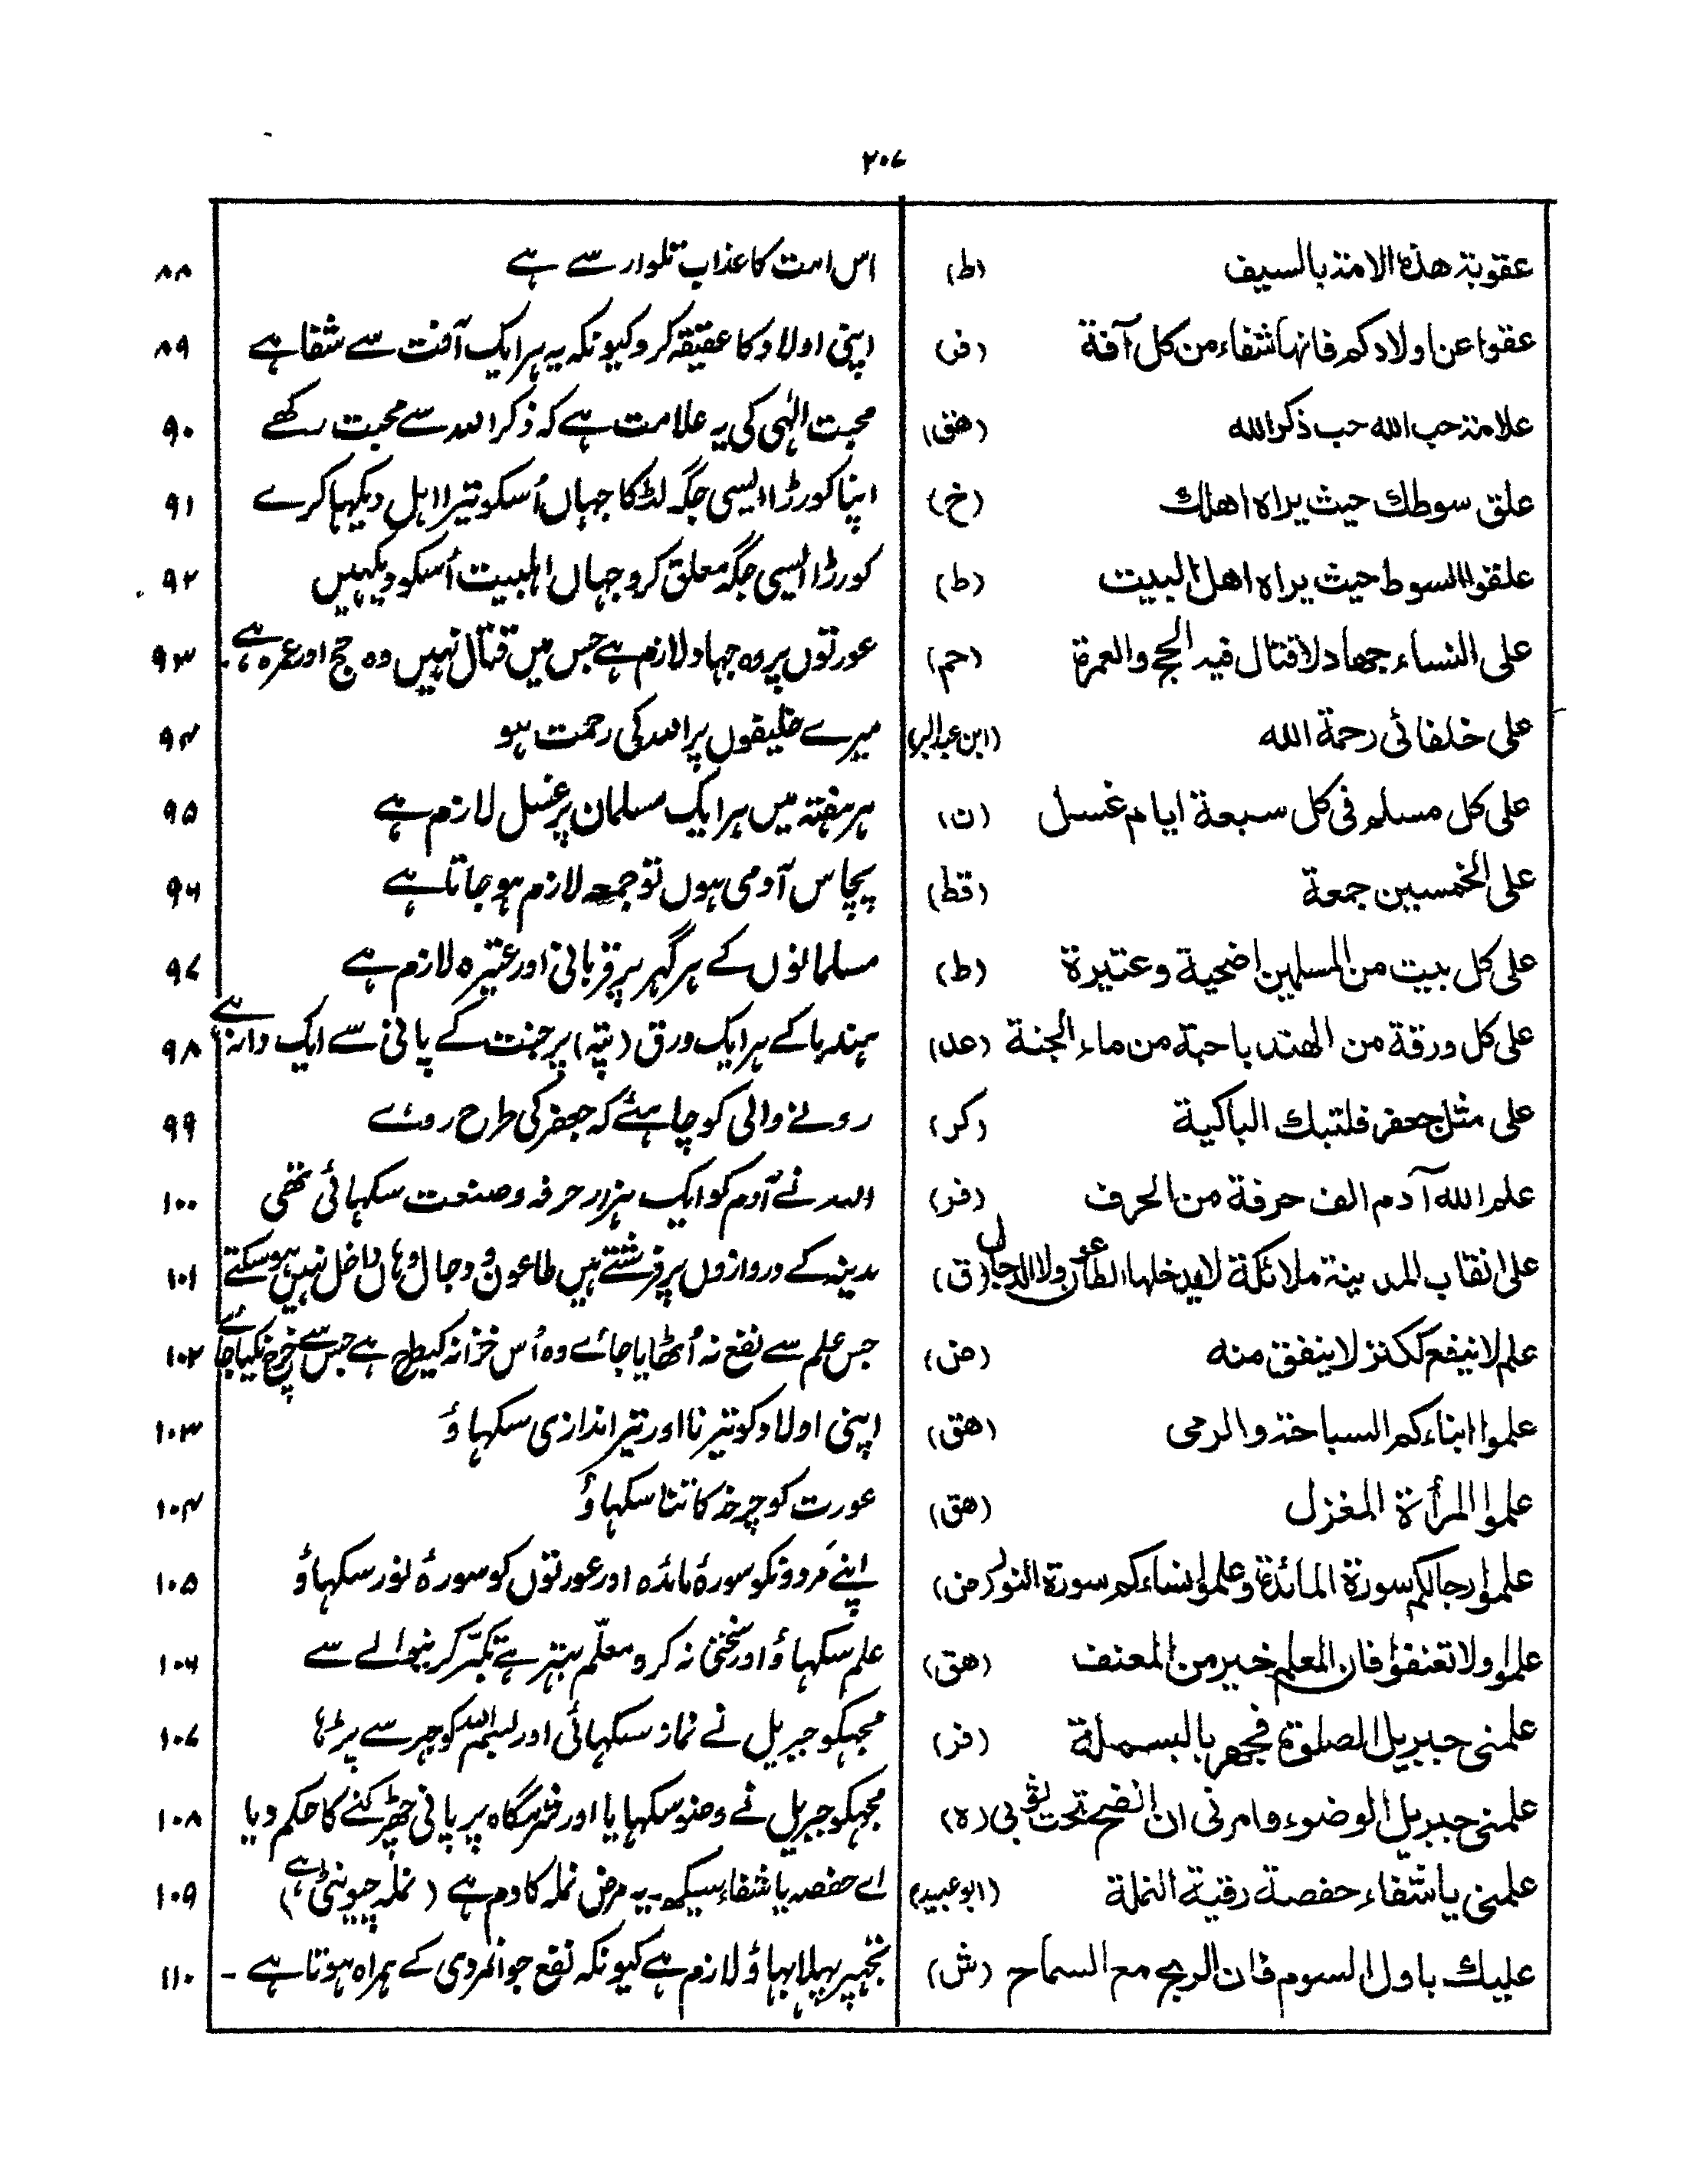 ۲۰۷
عقوبة هذه الامة بالسيف (ط) اس امت کا عذاب تلوار سے ہے ۸۸
عقوا عن اولادكم فانها شفاء من كل آفة (فر) اپنی اولاد کا عقیقہ کرو کیونکہ یہ ہر ایک آفت سے شفا ہے ۸۹
علامة حب الله حب ذكر الله (هق) محبت الٰہی کی یہ علامت ہے کہ ذکر اللہ سے محبت رکھے ۹۰
علق سوطك حيث يراه اهلك (خ) اپنا کورڑا ایسی جگہ لٹکا جہاں اُسکو تیرا اہل دیکہا کرے ۹۱
علقوا السوط حيث يراه اهل البيت (ط) کورڑا ایسی جگہ معلق کرو جہاں اہلبیت اُسکو دیکہیں ۹۲
على النساء جهاد لا قتال فيه الحج والعمرة (حم) عورتوں پر وہ جہاد لازم ہے جس میں قتال نہیں وہ حج اور عمرہ ہے۔ ۹۳
على خلفائى رحمة الله (ابن عبدالبر) میرے خلیفوں پر اللہ کی رحمت ہو ۹۴
على كل مسلم فى كل سبعة ايام غسل (ن) ہر ہفتہ میں ہر ایک مسلمان پر غسل لازم ہے ۹۵
على الخمسين جمعة (قط) پچاس آدمی ہوں تو جمعہ لازم ہو جاتا ہے ۹۶
على كل بيت من المسلمين اضحية وعتيرة (ط) مسلمانوں کے ہر گہر پر قربانی اور عتیرہ لازم ہے ۹۷
على كل ورقة من الهندباء حبة من ماء الجنة (عد) ہندبا کے ہر ایک ورق (پتہ) پر جنت کے پانی سے ایک دانہ ہے ۹۸
على مثل جعفر فلتبك الباكية (كر) رونے والی کو چاہئے کہ جعفر کی طرح روئے ۹۹
علم الله آدم الف حرفة من الحرف (فر) اللہ نے آدم کو ایک ہزار حرفہ و صنعت سکہائی تھی ۱۰۰
على انقاب المدينة ملائكة لا يدخلها الطاعون ولا الدجال (ق) مدینہ کے دروازوں پر فرشتے ہیں طاعون و دجال وہاں داخل نہیں ہو سکتے ۱۰۱
علم لا ينفع ككنز لا ينفق منه (ض) جس علم سے نفع نہ اُٹھایا جائے وہ اُس خزانہ کیطرح ہے جس سے خرچ نکیا جائے ۱۰۲
علموا ابناءكم السباحة والرمى (هق) اپنی اولاد کو تیرنا اور تیر اندازی سکہاؤ ۱۰۳
علموا المرأة المغزل (هق) عورت کو چرخہ کاتنا سکہاؤ ۱۰۴
علموا رجالكم سورة المائدة وعلموا نساءكم سورة النور (ض) اپنے مَردونکو سورۂ مائدہ اور عورتوں کو سورۂ نور سکہاؤ ۱۰۵
علموا ولا تعنفوا فان المعلم خير من المعنف (هق) علم سکہاؤ اور سختی نہ کرو معلّم بہتر ہے تکبّر کرنیوالے سے ۱۰۶
علمنى جبريل الصلوة فجهر بالبسملة (فر) مجہکو جبریل نے نماز سکہائی اور بسم اللہ کو جہر سے پڑہا ۱۰۷
علمنى جبريل الوضوء وامرنى ان انضح تحت ثوبى (ه) مجہکو جبریل نے وضو سکہایا اور شرمگاہ پر پانی چھڑکنے کا حکم دیا ۱۰۸
علمنى يا شفاء حفصة رقية النملة (ابوعبيد) اے حفصہ یا شفاء سیکھ۔ یہ مرض نملہ کا دم ہے (نملہ چیونٹی ہے) ۱۰۹
عليك باول السوم فان الربح مع السماح (ش) تجہپر پہلا بہاؤ لازم ہے کیونکہ نفع جوانمردی کے ہمراہ ہوتا ہے ۔ ۱۱۰